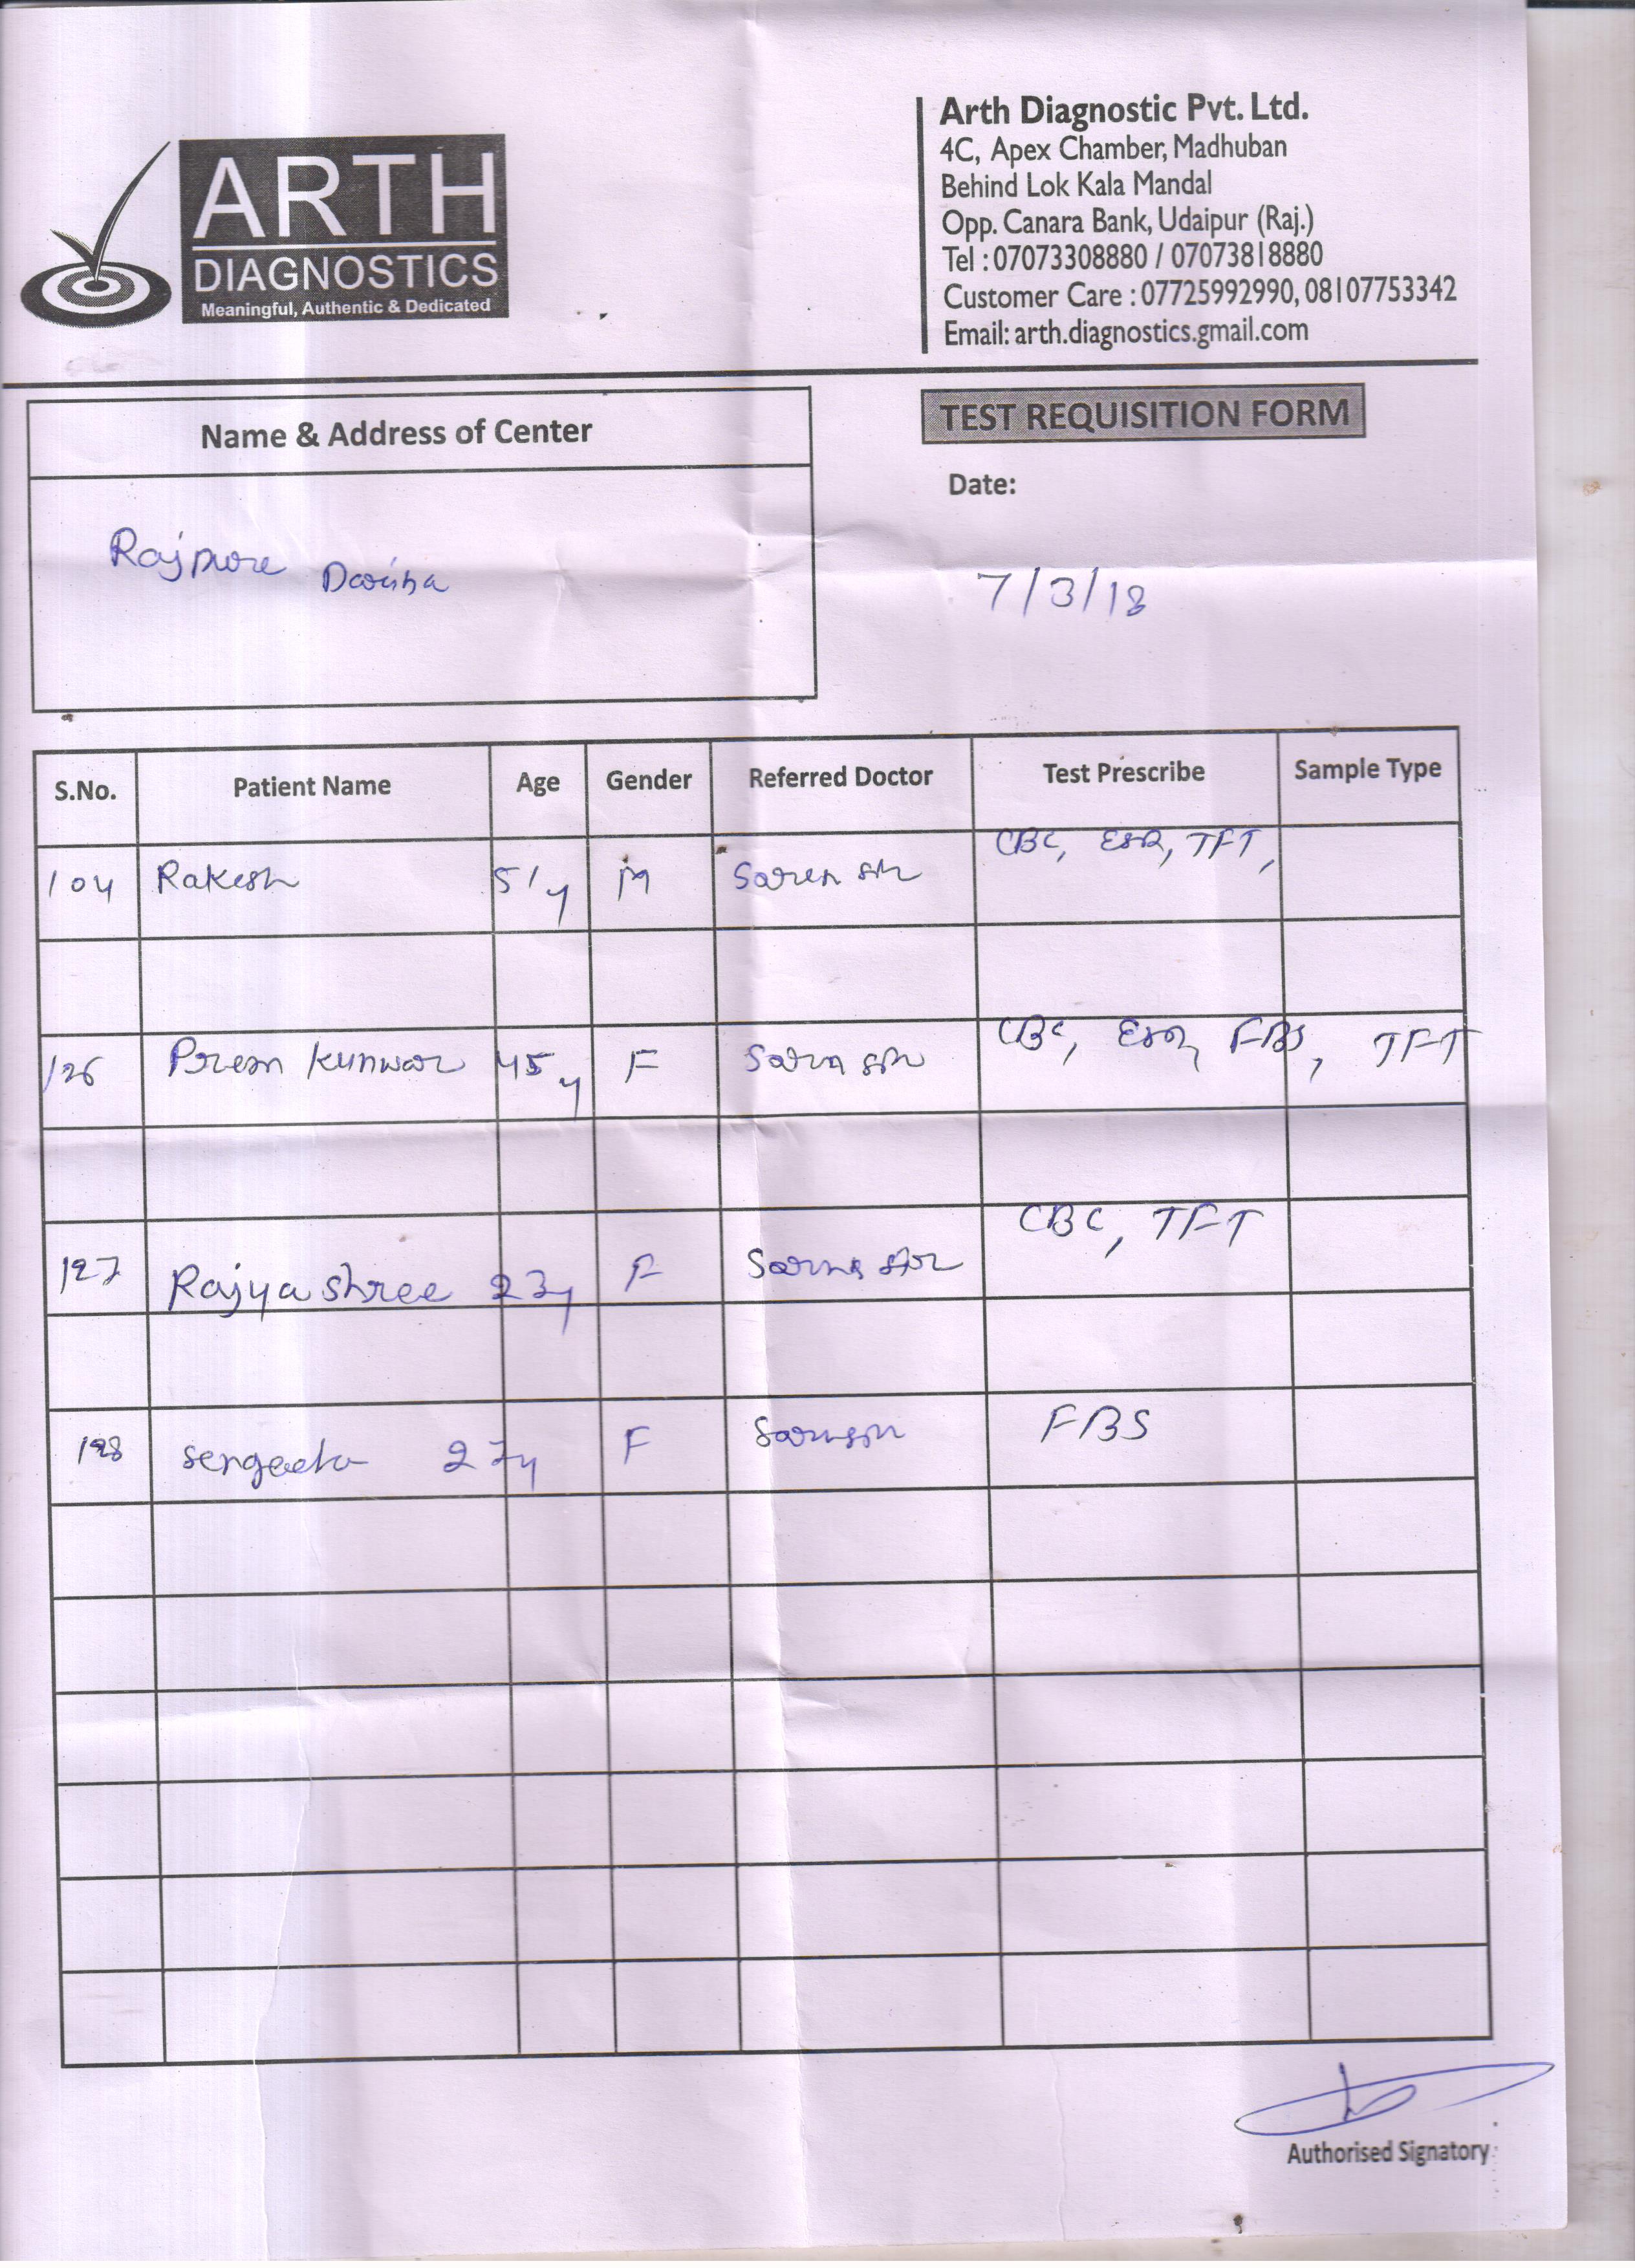 ARTH
DIAGNOSTICS
Meaningful, Authentic & Dedicated
Arth Diagnostic Pvt. Ltd.
4C, Apex Chamber, Madhuban
Behind Lok Kala Mandal
Opp. Canara Bank, Udaipur (Raj.)
Tel : 07073308880 / 07073818880
Customer Care : 07725992990, 08107753342
Email: arth.diagnostics.gmail.com
Name & Address of Center
TEST REQUISITION FORM
Date:
Rajpure
7/3/18
S.No. Patient Name Age Gender Referred Doctor Test Prescribe Sample Type
104 Rakesh 51y M CBC, ESR, TFT,
126 Prem Kunwar 45y F CBC, ESR, FBS, TFT
127 Rajyashree 23y F CBC, TFT
128 sengeeta 27y F FBS
Authorised Signatory